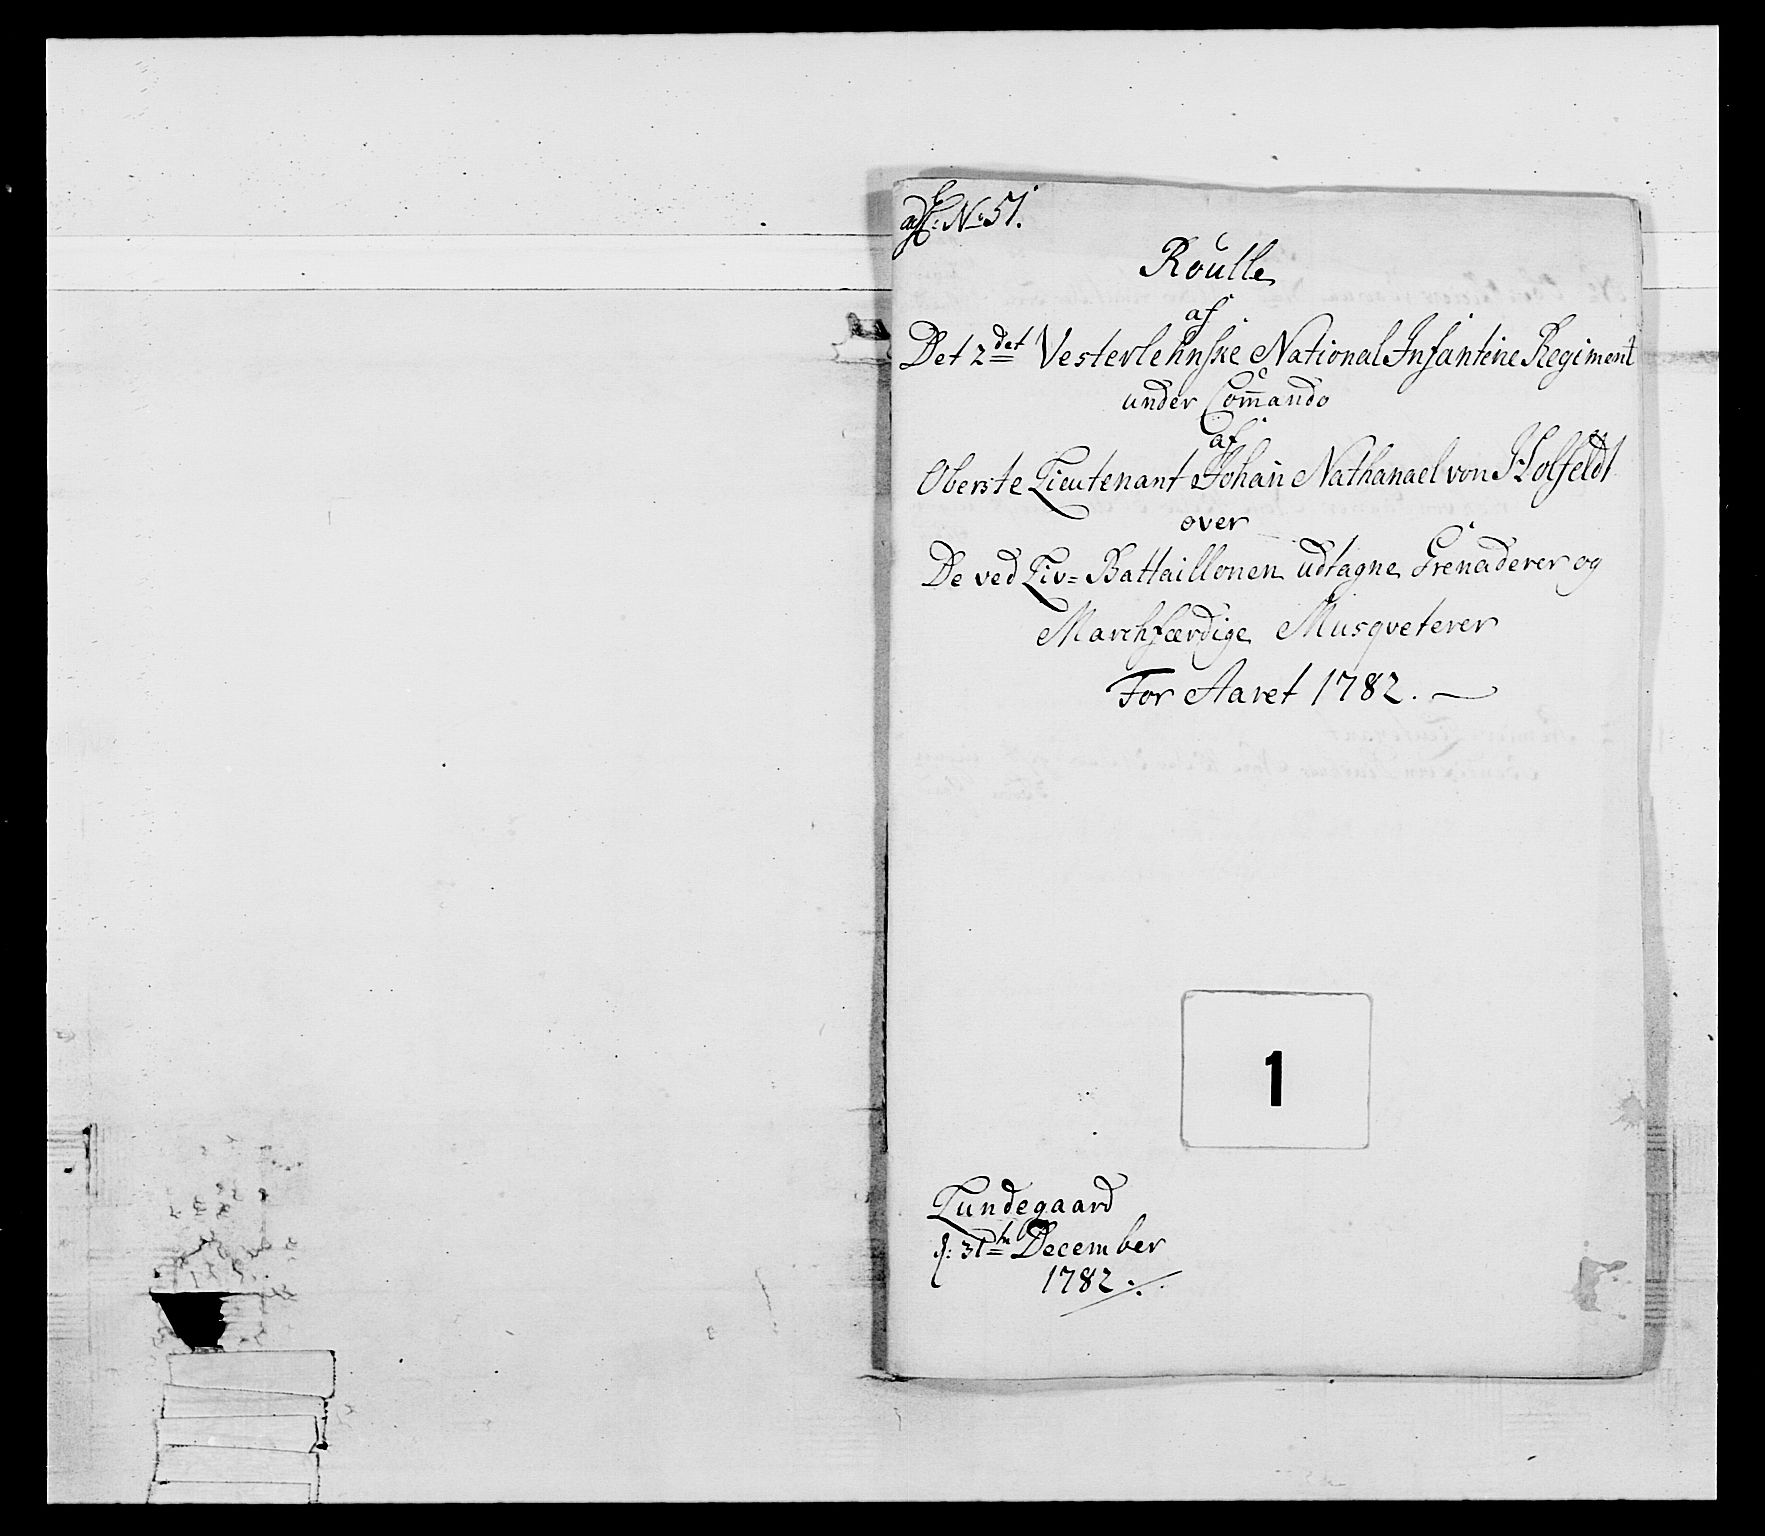 No 51.
Roulle
af
Det 2det Vesterlehnske National Infanterie Regiment
under Com̄ando
af
Oberste Lieutenant Johan Nathanael von Holfeldt
over
De ved Liv= Battaillonen udtagne Grenaderer og
Marchfærdige Musqveterer
For Aaret 1782.
1
Lundegaard
d: 31th December
1782.